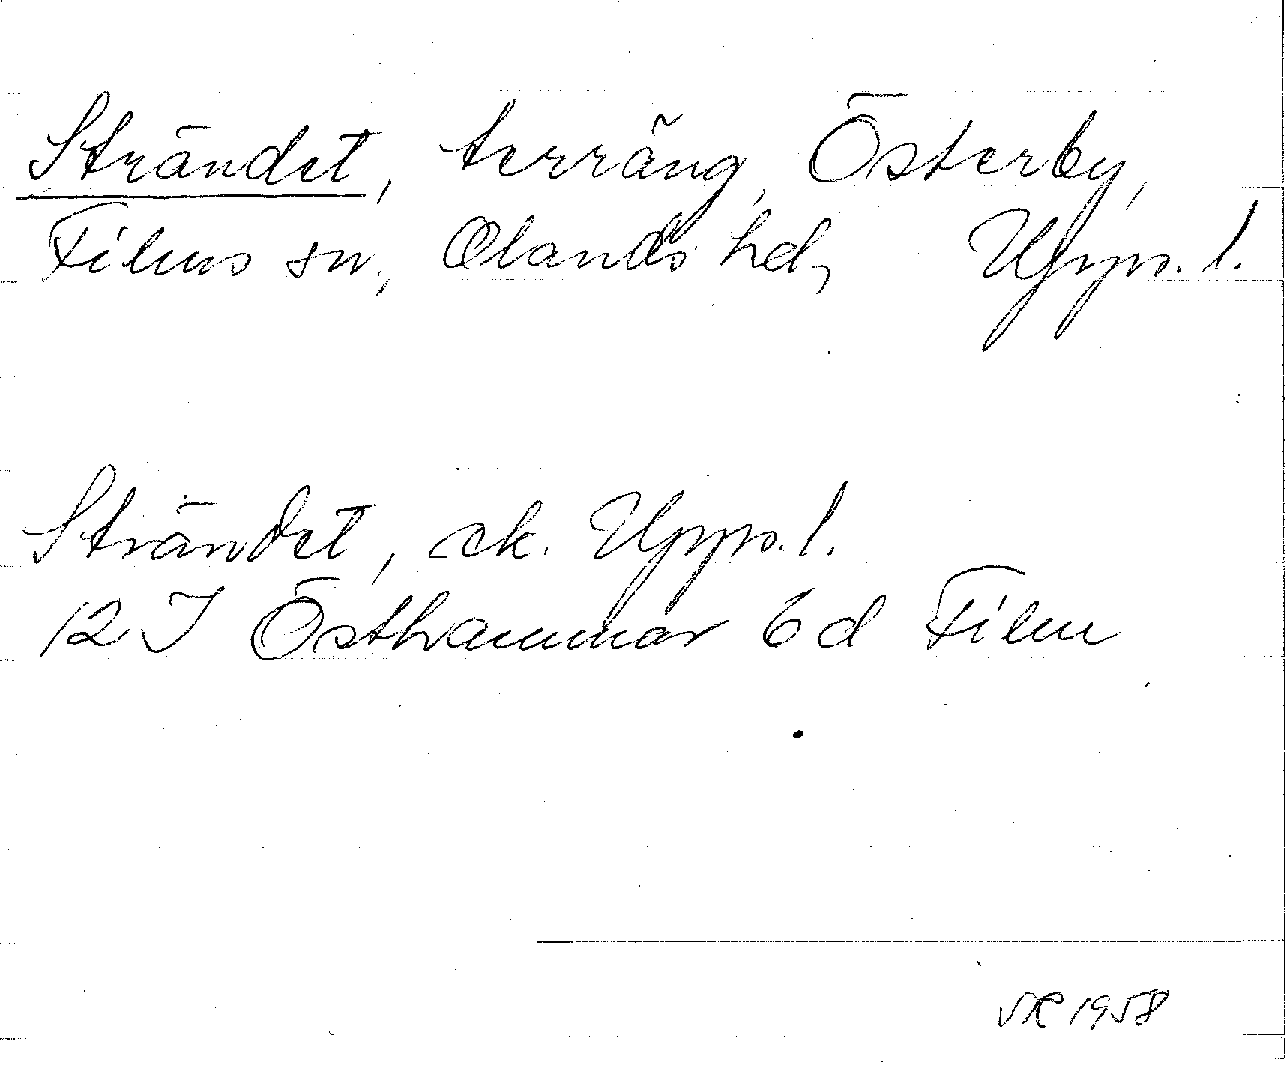 Strändet, terräng, Österby,
Films sn, Olands hd, Upps. l.
Strändet, ek. Upps. l.
12 I Östhammar 6 d Film
VR 1958